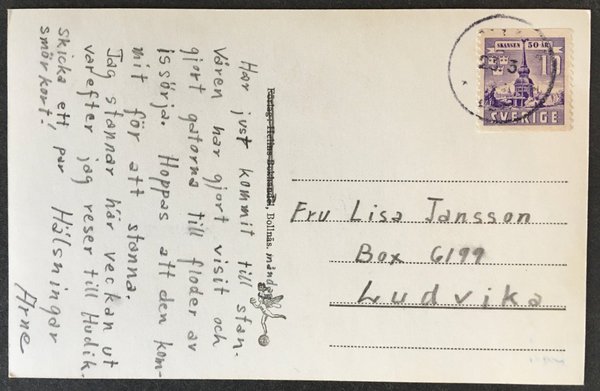 måndag
Har just kommit till stan.
Våren har gjort visit och
gjort gatorna till floder av
issörja. Hoppas att den kom-
mit för att stanna.
Jag stannar här veckan ut
varefter jag reser till Hudik.
Skicka ett par
smörkort!
Hälsningar
Arne
Bokhandel, Bollnäs.
SKANSEN 50 ÅR
10
SVERIGE
Fru Lisa Jansson
Box 6199
Ludvika